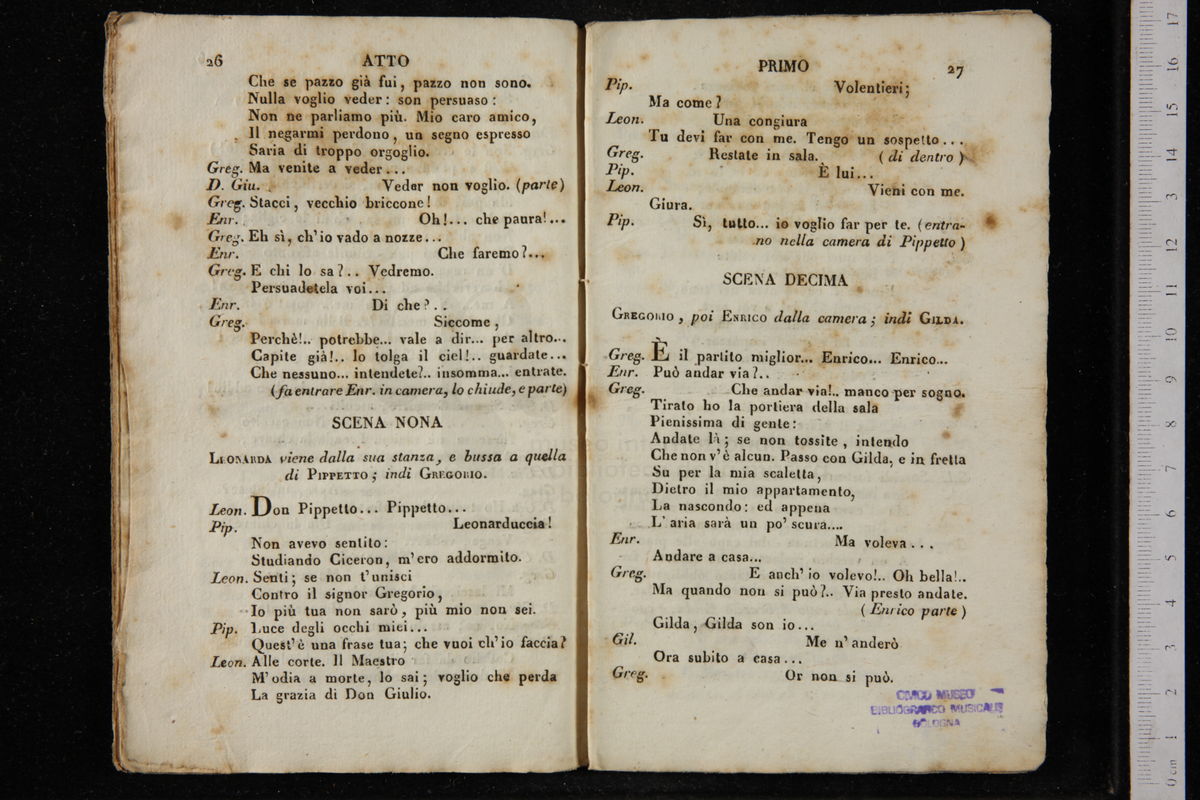 26 ATTO
Che se pazzo già fui, pazzo non sono.
Nulla voglio veder: son persuaso:
Non ne parliamo più. Mio caro amico,
Il negarmi perdono, un segno espresso
Saria di troppo orgoglio.
Greg. Ma venite a veder...
D. Giu. Veder non voglio. (parte)
Greg. Stacci, vecchio briccone!
Enr. Oh!... che paura!...
Greg. Eh sì, ch'io vado a nozze...
Enr. Che faremo?...
Greg. E chi lo sa?.. Vedremo.
Persuadetela voi...
Enr. Di che?..
Greg. Siccome,
Perchè!.. potrebbe... vale a dir... per altro...
Capite già!.. lo tolga il ciel!.. guardate...
Che nessuno... intendete?.. insomma... entrate.
(fa entrare Enr. in camera, lo chiude, e parte)
SCENA NONA
LEONARDA viene dalla sua stanza, e bussa a quella
di PIPPETTO; indi GREGORIO.
Leon. Don Pippetto... Pippetto...
Pip. Leonarduccia!
Non avevo sentito:
Studiando Ciceron, m'ero addormito.
Leon. Senti; se non t'unisci
Contro il signor Gregorio,
Io più tua non sarò, più mio non sei.
Pip. Luce degli occhi miei...
Quest'è una frase tua; che vuoi ch'io faccia?
Leon. Alle corte. Il Maestro
M'odia a morte, lo sai; voglio che perda
La grazia di Don Giulio.
PRIMO 27
Pip. Volentieri;
Ma come?
Leon. Una congiura
Tu devi far con me. Tengo un sospetto...
Greg. Restate in sala. (di dentro)
Pip. È lui...
Leon. Vieni con me.
Giura.
Pip. Sì, tutto... io voglio far per te. (entra-
no nella camera di Pippetto)
SCENA DECIMA
GREGORIO, poi ENRICO dalla camera; indi GILDA.
Greg. È il partito miglior... Enrico... Enrico...
Enr. Può andar via?..
Greg. Che andar via!.. manco per sogno.
Tirato ho la portiera della sala
Pienissima di gente:
Andate là; se non tossite, intendo
Che non v'è alcun. Passo con Gilda, e in fretta
Su per la mia scaletta,
Dietro il mio appartamento,
La nascondo: ed appena
L'aria sarà un po' scura....
Enr. Ma voleva...
Andare a casa...
Greg. E anch'io volevo!.. Oh bella!..
Ma quando non si può?.. Via presto andate.
(Enrico parte)
Gilda, Gilda son io...
Gil. Me n'anderò
Ora subito a casa...
Greg. Or non si può.
CIVICO MUSEO
BIBLIOGRAFICO MUSICALE
BOLOGNA
0 cm 1 2 3 4 5 6 7 8 9 10 11 12 13 14 15 16 17